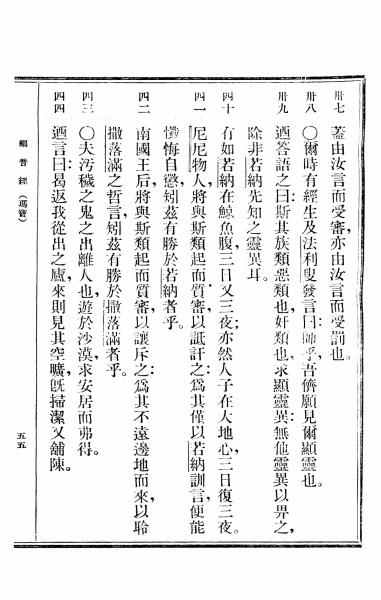 卅七 蓋由汝言而受審亦由汝言而受罰也。
卅八 〇爾時有經生及法利叟發言曰師乎吾儕願見爾顯靈也。
卅九 迺答語之曰斯其族類惡類也奸類也求顯靈異無他靈異以畀之、
除非若納先知之靈異耳。
四十 有如若納在鯨魚腹三日又三夜亦然人子在大地心三日復三夜。
四一 尼尼物人將與斯類起而質審以詆訐之爲其僅以若納訓言便能
懺悔自懲矧茲有勝於若納者乎。
四二 南國王后將與斯類起而質審以讓斥之爲其不遠邊地而來以聆
撒落滿之哲言矧茲有勝於撒落滿者乎。
四三 〇夫汚穢之鬼之出離人也遊於沙漠求安居而弗得。
四四 迺言曰曷返我從出之廬來則見其空曠旣掃潔又舖陳。
福音經 (瑪竇) 五五